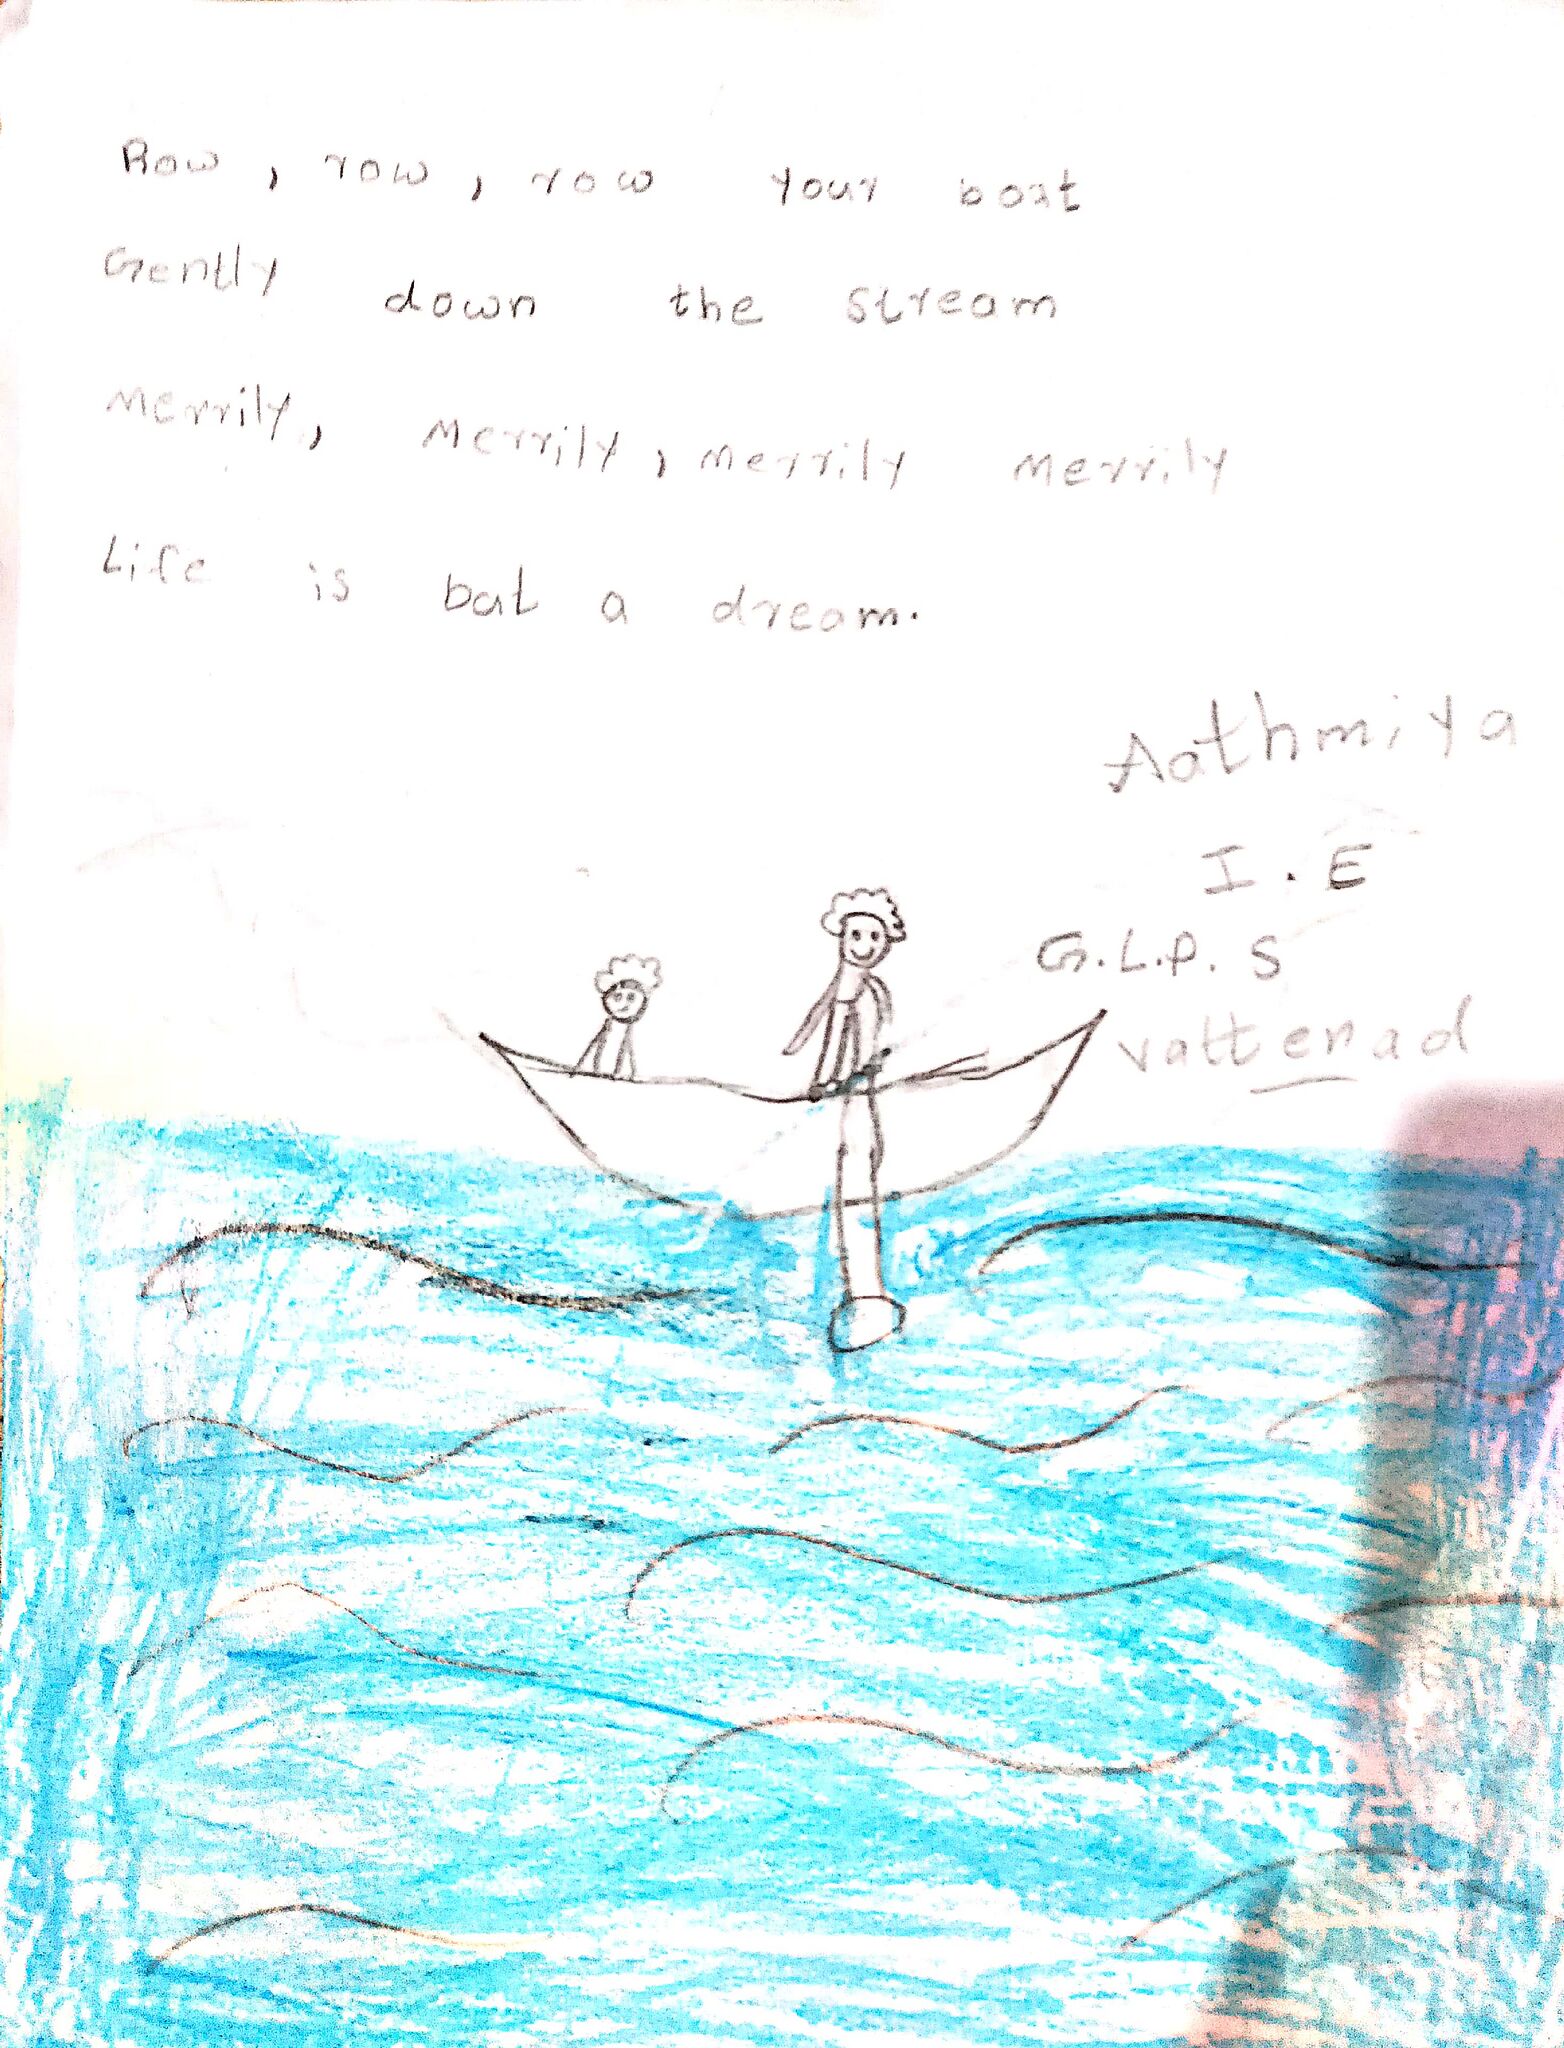 Row, row, row your boat
Gently down the stream
Merrily, Merrily, merrily merrily
Life is bat a dream.
Aathmiya
I.E
G.L.P.S
vattenad